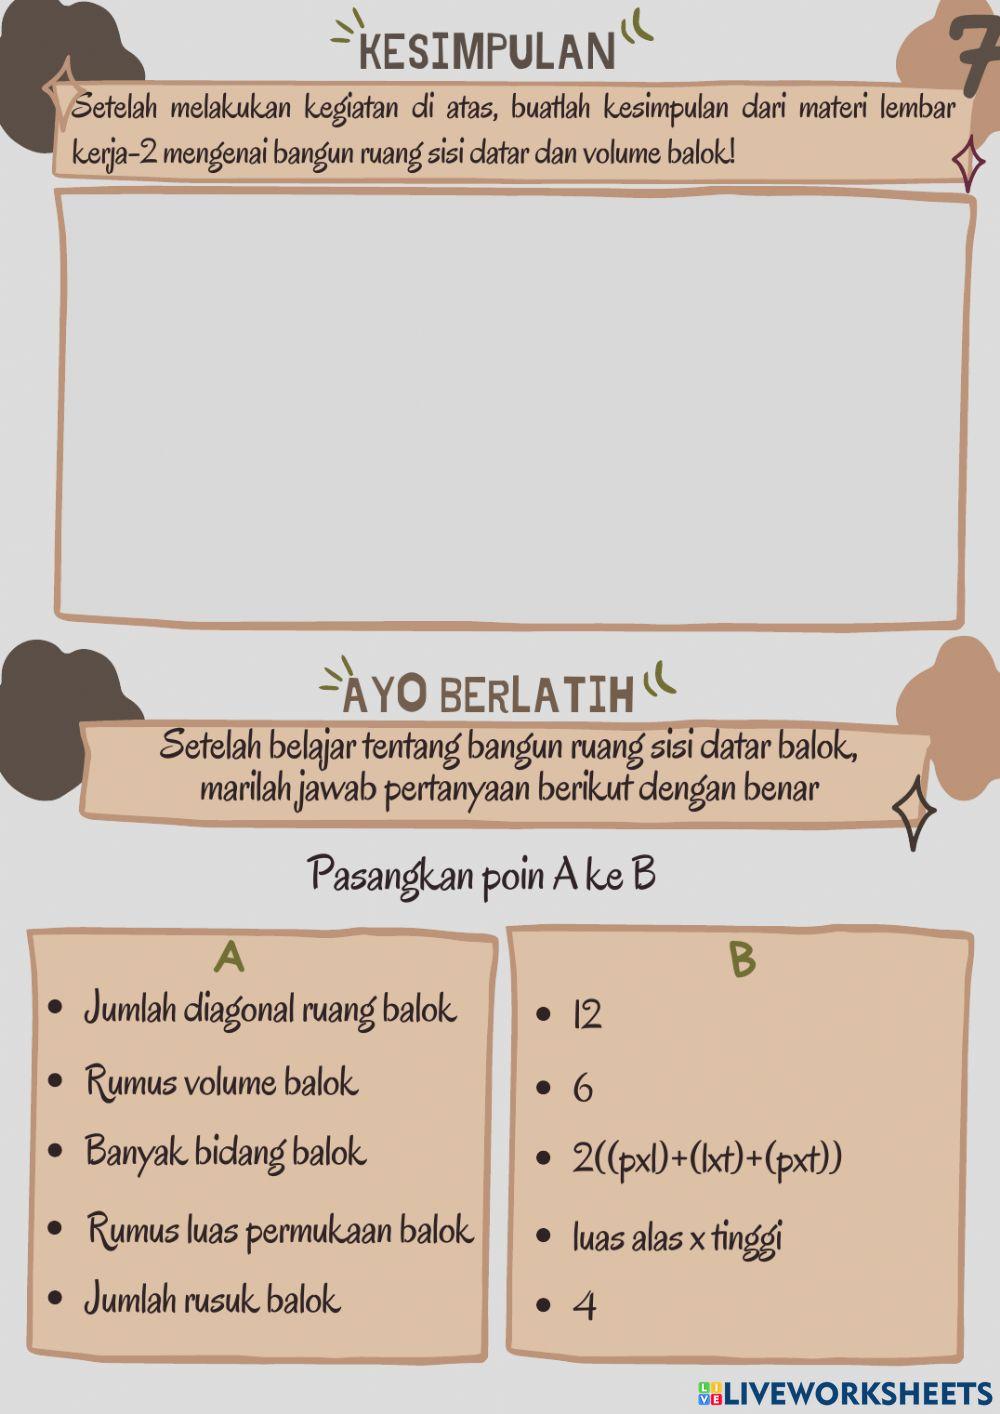 KESIMPULAN
Setelah melakukan kegiatan di atas, buatlah kesimpulan dari materi lembar
kerja-2 mengenai bangun ruang sisi datar dan volume balok!
AYO BERLATIH
Setelah belajar tentang bangun ruang sisi datar balok,
marilah jawab pertanyaan berikut dengan benar
Pasangkan poin A ke B
A
• Jumlah diagonal ruang balok
• Rumus volume balok
• Banyak bidang balok
• Rumus luas permukaan balok
• Jumlah rusuk balok
B
• 12
• 6
• 2((pxl)+(lxt)+(pxt))
• luas alas x tinggi
• 4
LIVEWORKSHEETS